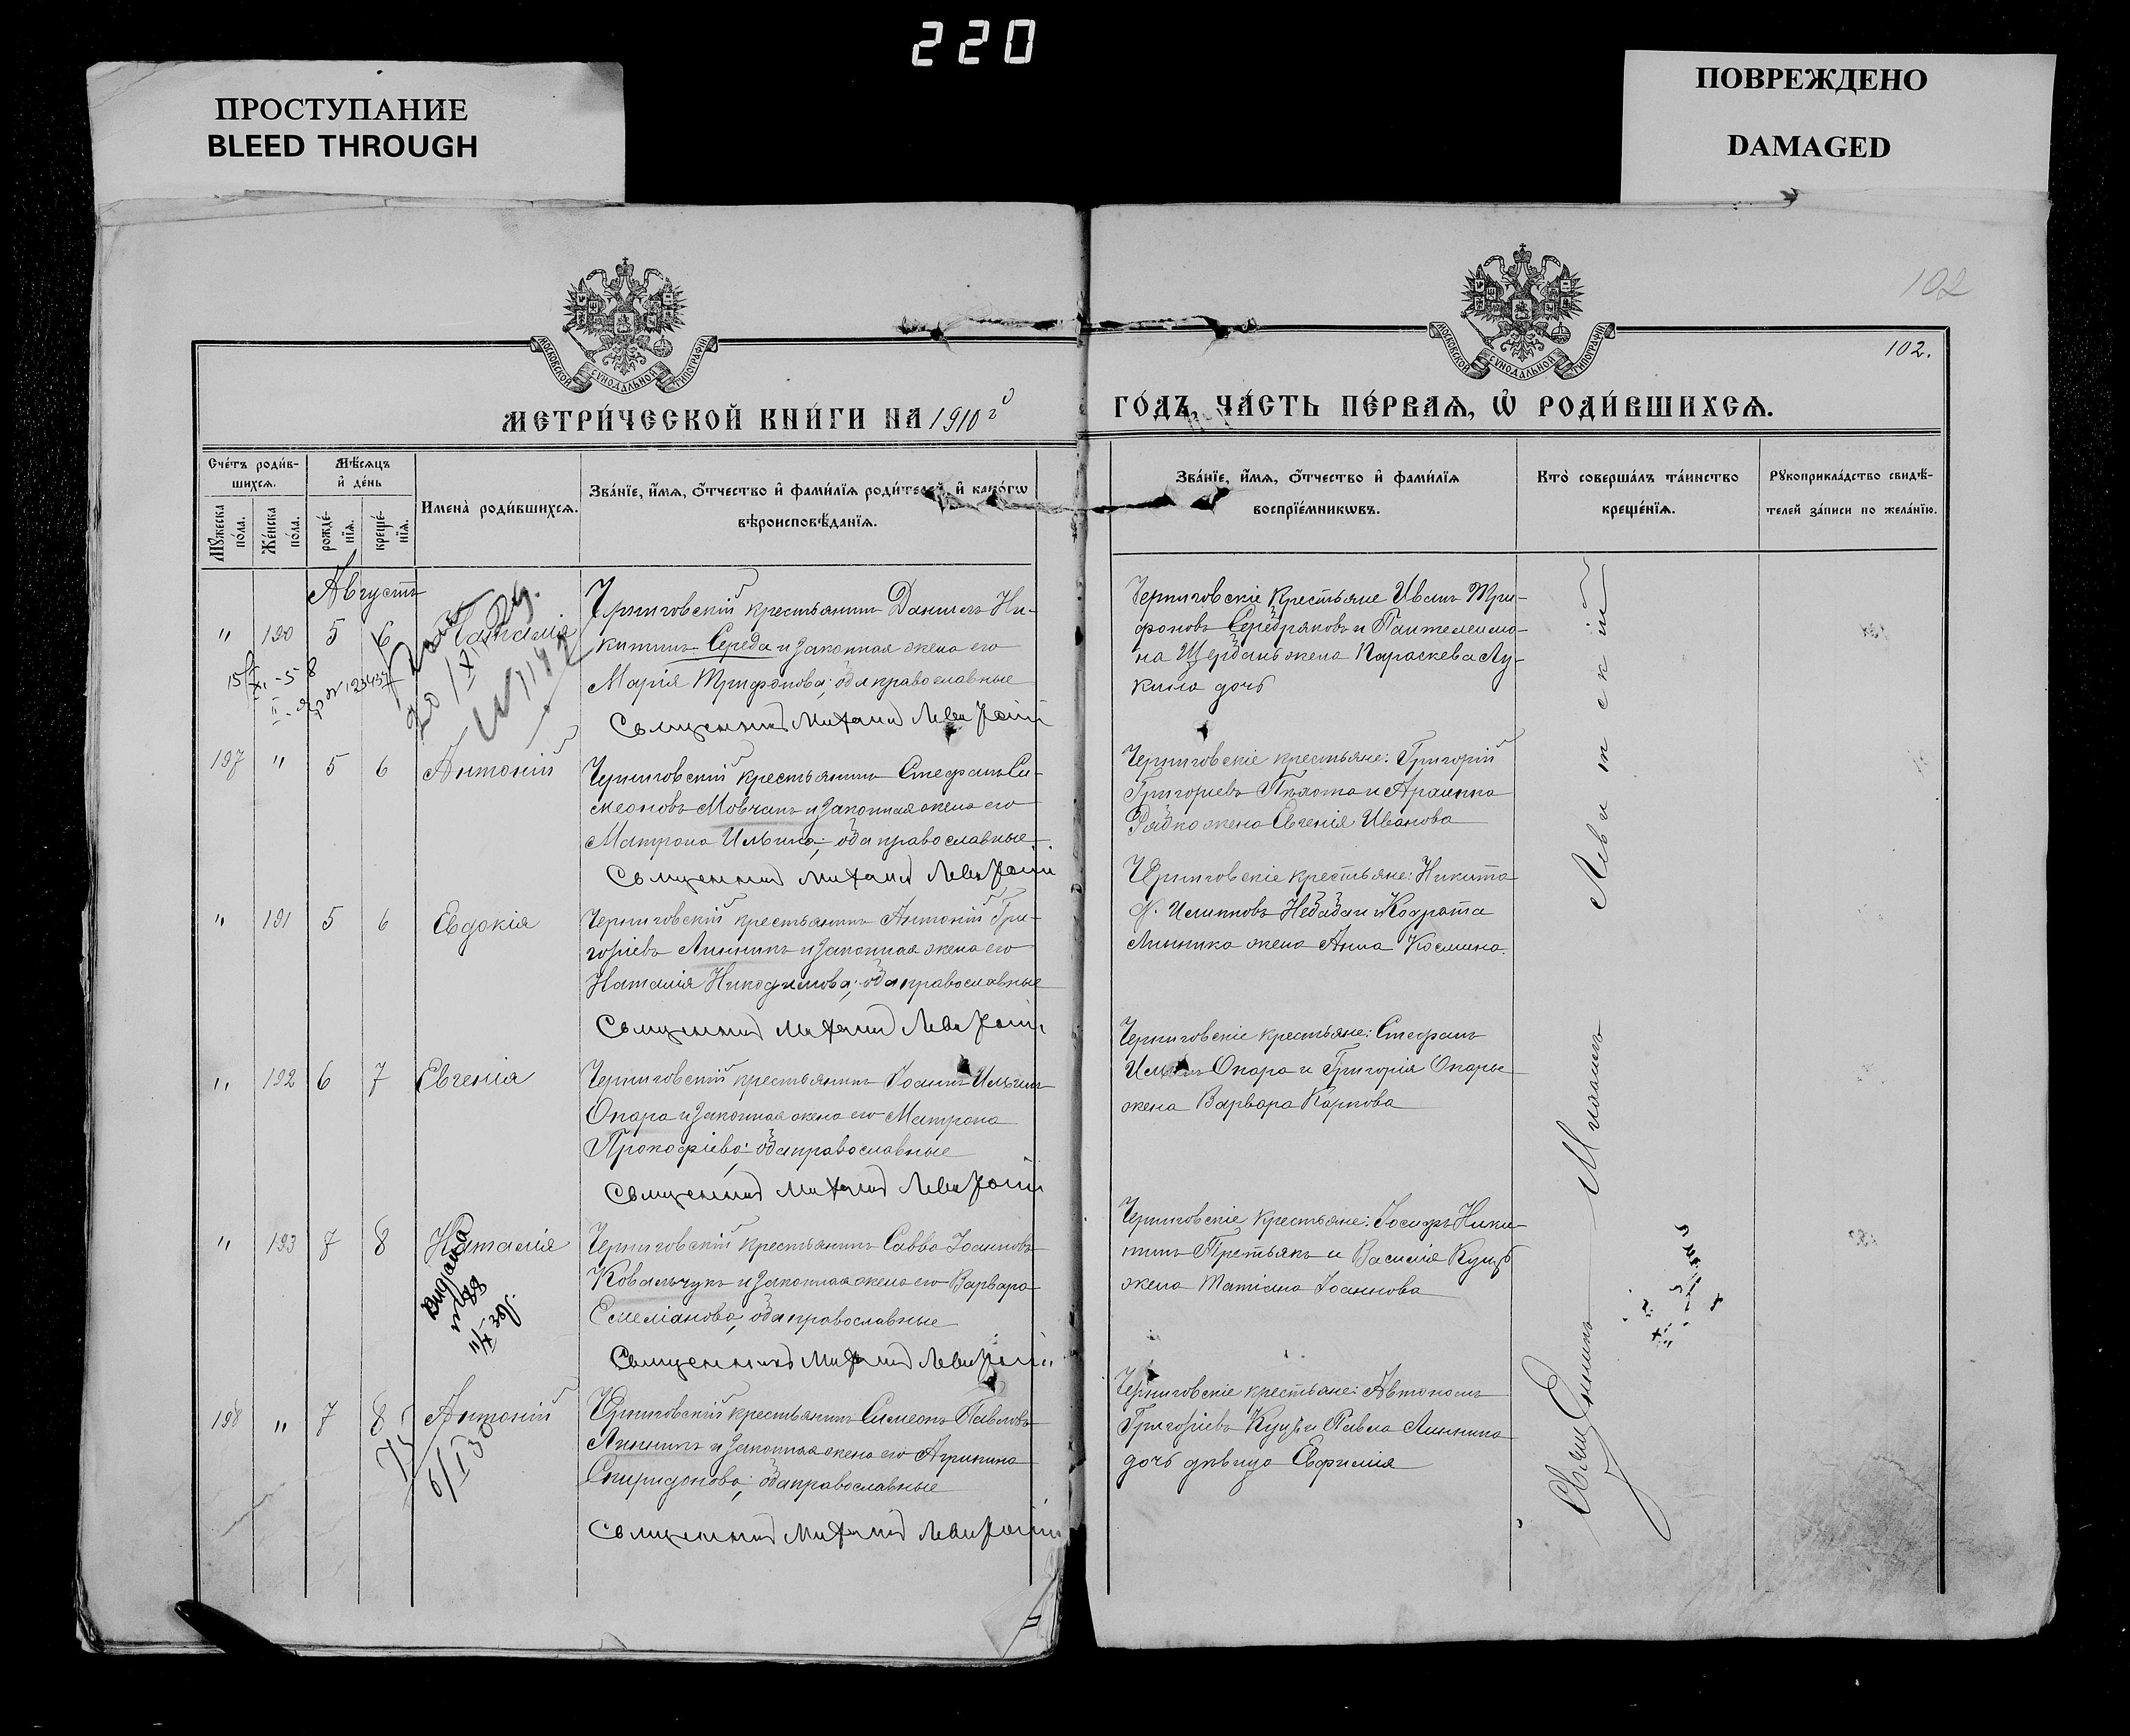 220
ПРОСТУПАНИЕ
BLEED THROUGH
ПОВРЕЖДЕНО
DAMAGED
102
102.
МОСКОВСКОЙ СѴНОДАЛЬНОЙ ТИПОГРАФІИ
МОСКОВСКОЙ СѴНОДАЛЬНОЙ ТИПОГРАФІИ
МЕТРИ́ЧЕСКОЙ КНИ́ГИ НА 1910 г
ГО́ДЪ, ЧА́СТЬ ПЕ́РВАЯ, Ѡ҆ РОДИ́ВШИХСЯ.
Сче́тъ роди́в-
шихся.
Мѣ́сяцъ
и҆ де́нь
Мꙋ́жеска по́ла.
Же́нска по́ла.
рожде́-
нїя.
креще́-
нїя.
И҆мена̀ роди́вшихся.
Зва́нїе, и҆́мя, ѻ҆́тчество и҆ фами́лїя роди́телей, и҆ како́гѡ
вѣроисповѣ́данїя.
Зва́нїе, и҆́мя, ѻ҆́тчество и҆ фами́лїя
воспрїе́мникѡвъ.
Кто̀ соверша́лъ та́инство
креще́нїя.
Рꙋкоприкла́дство свидѣ́-
телей за́писи по жела́нїю.
Августъ
" 190 5 6 Наталія
Черниговскій крестьянинъ Даніилъ Ни-
китинъ Середа и законная жена его
Марія Трифонова; оба православные
Священникъ Михаилъ Левитскій
Черниговскіе крестьяне Иванъ Три-
фоновъ Серебряковъ и Пантелеимо-
на Щербань жена Параскева Лу-
кина дочь
№ 1192
197 " 5 6 Антоній
Черниговскій крестьянинъ Стефанъ Си-
меоновъ Мовчанъ и законная жена его
Матрона Ильина; оба православные
Священникъ Михаилъ Левитскій
Черниговскіе крестьяне: Григорій
Григорьевъ и
Рябко жена Евгенія Иванова
" 191 5 6 Евдокія
Черниговскій крестьянинъ Антоній Гри-
горіевъ Линникъ и законная жена его
Наталія Никодимова; оба православные
Священникъ Михаилъ Левитскій
Черниговскіе крестьяне: Никита
Линника жена Анна Космина.
" 192 6 7 Евгенія
Черниговскій крестьянинъ Іоаннъ Ильинъ
Опара и законная жена его Матрона
Прокофіева; оба православные
Священникъ Михаилъ Левитскій
Черниговскіе крестьяне: Стефанъ
Ильинъ Опара и Григорія Опары
жена Варвара Карпова
" 193 7 8 Наталія
Черниговскій крестьянинъ Савва Іоанновъ
Ковальчукъ и законная жена его Варвара
Емеліанова; оба православные
Священникъ Михаилъ Левитскій
Черниговскіе крестьяне: Іосифъ Ники-
тинъ Третьякъ и Василія Куцъ
жена Татіана Іоаннова
198 " 7 8 Антоній
Черниговскій крестьянинъ Симеонъ Павловъ
Линникъ и законная жена его Агрипина
Спиридонова; оба православные
Священникъ Михаилъ Левитскій
Черниговскіе крестьяне: Автономъ
Григоріевъ Куцъ и Павла Линника
дочь дѣвица Евфимія
Священникъ Михаилъ Левитскій